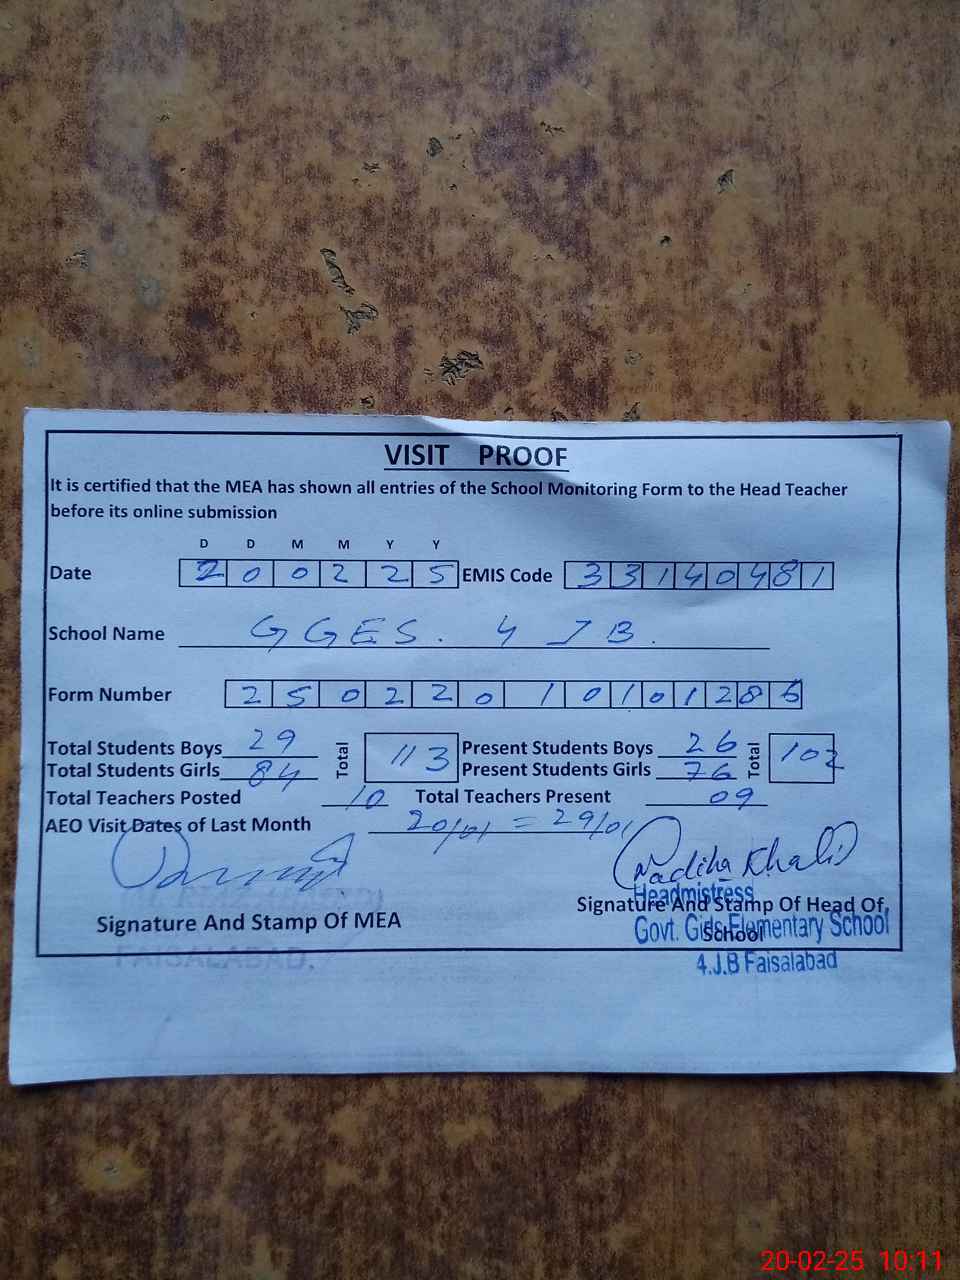 VISIT PROOF
It is certified that the MEA has shown all entries of the School Monitoring Form to the Head Teacher
before its online submission
D D M M Y Y
Date 2 0 0 2 2 5 EMIS Code 3 3 1 4 0 4 8 1
School Name GGES. 4 JB.
Form Number 2 5 0 2 2 0 1 0 1 0 1 2 8 6
Total Students Boys 29 Total 113 Present Students Boys 26 Total 102
Total Students Girls 84 Present Students Girls 76
Total Teachers Posted 10 Total Teachers Present 09
AEO Visit Dates of Last Month 20/01 = 29/01
Nadiha Khalid
Headmistress
Signature And Stamp Of MEA Signature And Stamp Of Head Of,
School
Govt. Girls Elementary School
FAISALABAD.
4.J.B Faisalabad
20-02-25 10:11